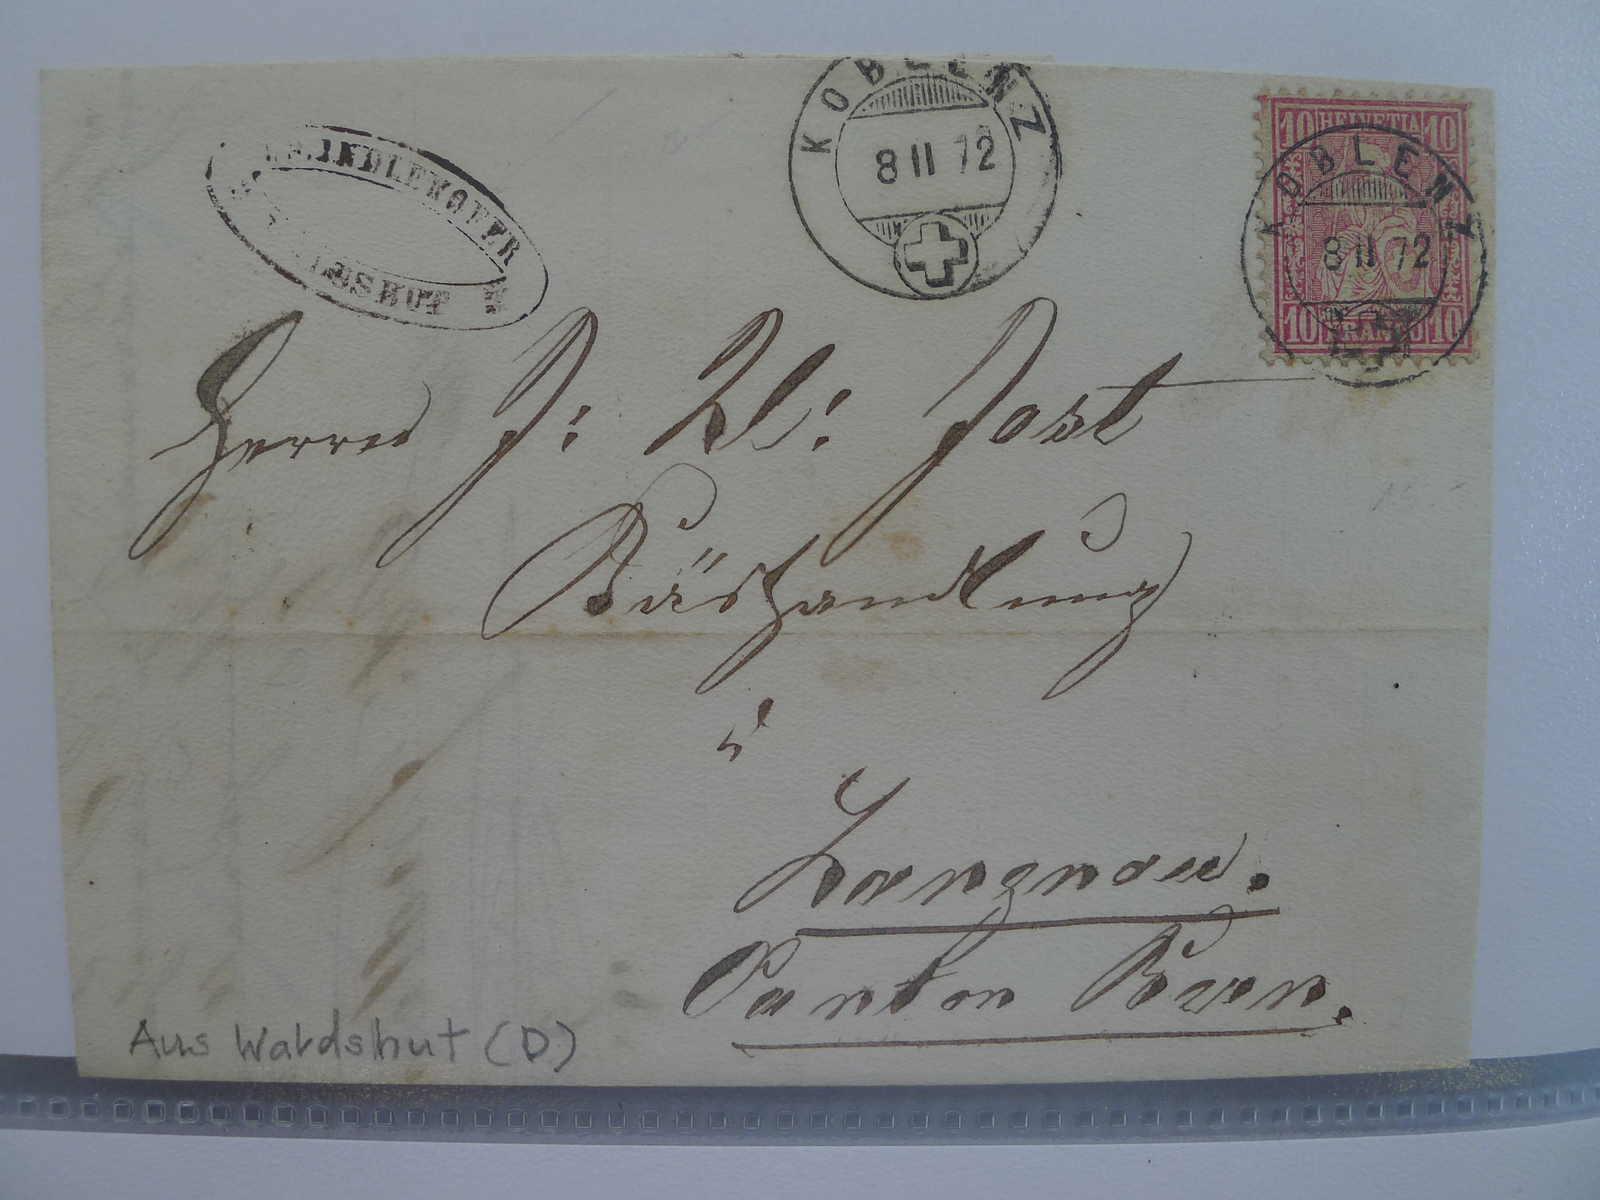 KOBLENZ
8 II 72
10 HELVETIA 10
KOBLENZ
8 II 72
10 FRANCO 10
INDLEKOFER
WALDSHUT
Herrn J: Ul: Jost
Käshandlung
i
Langnau.
Canton Bern.
Aus Waldshut (D)